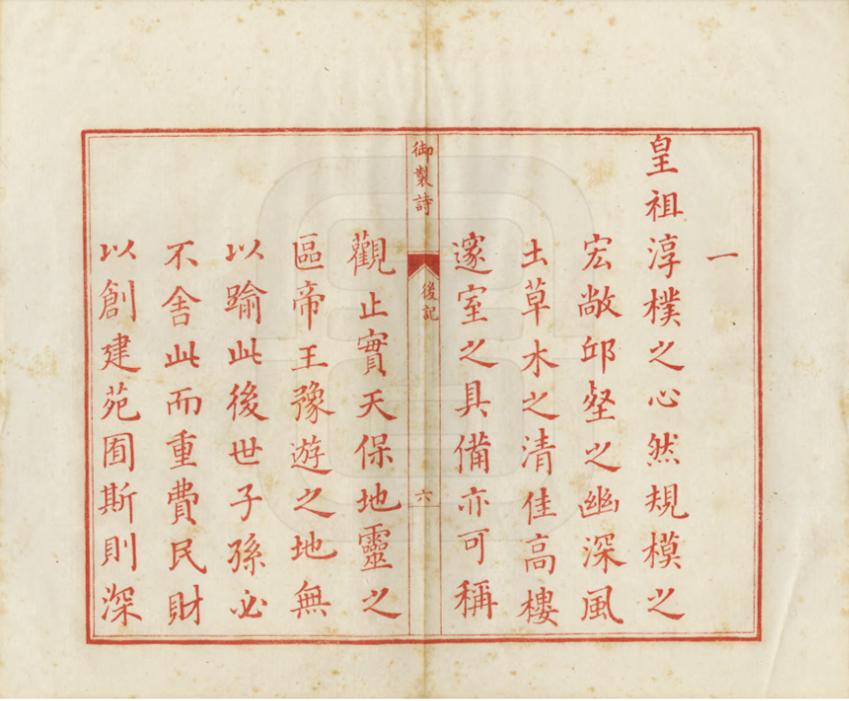 一
皇祖淳樸之心然規模之
宏敞邱壑之幽深風
土草木之清佳高樓
邃室之具備亦可稱
御製詩
後記
六
觀止實天保地靈之
區帝王豫遊之地無
以踰此後世子孫必
不舍此而重費民財
以創建苑囿斯則深